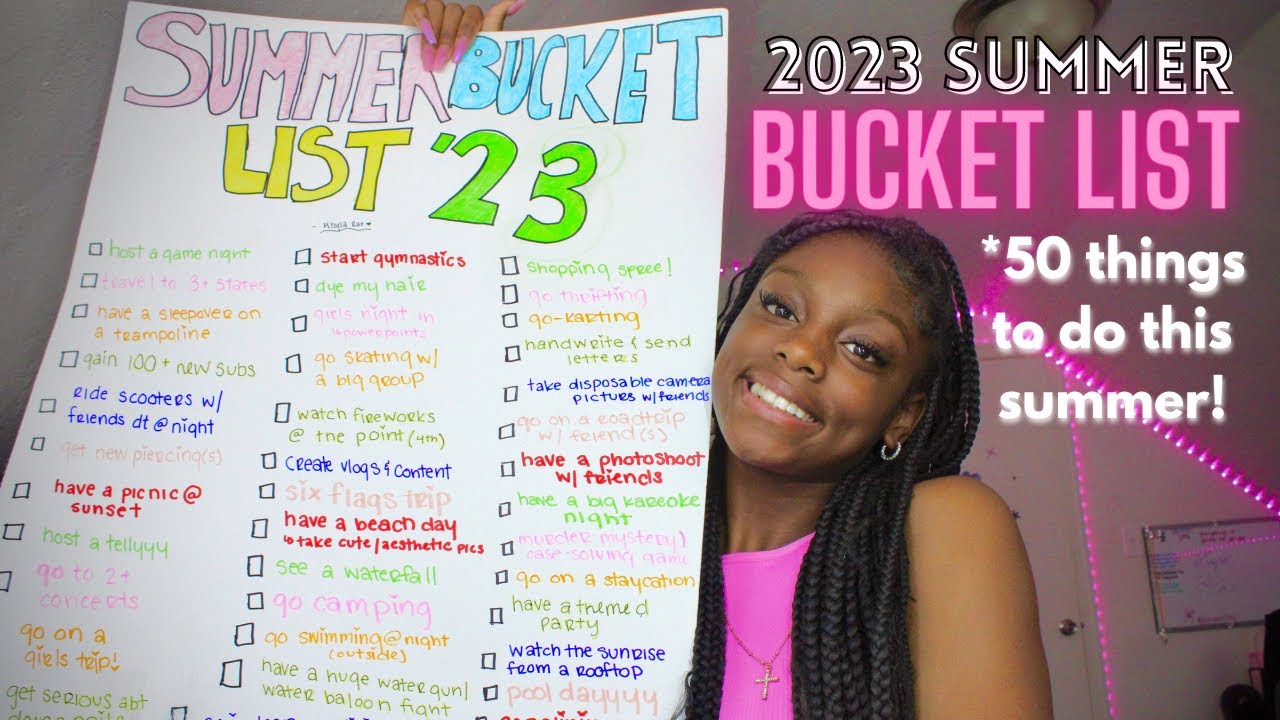 SUMMER BUCKET
LIST '23
- Khyla Rae
host a game night
travel to 3+ states
have a sleepover on
a trampoline
gain 100+ new subs
ride scooters w/
friends dt @ night
get new piercing(s)
have a picnic @
sunset
host a tellyyy
go to 2+
concerts
go on a
girls trip!
get serious abt
start gymnastics
dye my hair
girls night in
↳ powerpoints
go skating w/
a big group
watch fireworks
@ the point (4th)
create vlogs & content
six flags trip
have a beach day
↳ take cute/aesthetic pics
see a waterfall
go camping
go swimming @ night
(outside)
have a huge water gun/
water baloon fight
shopping spree!
go thrifting
go-karting
handwrite & send
letters
take disposable camera
picture w/ friends
go on a roadtrip
w/ friend(s)
have a photoshoot
w/ friends
have a big kareoke
night
murder mystery/
case-solving game
go on a staycation
have a themed
party
watch the sunrise
from a rooftop
pool dayyyy
2023 SUMMER
BUCKET LIST
*50 things
to do this
summer!